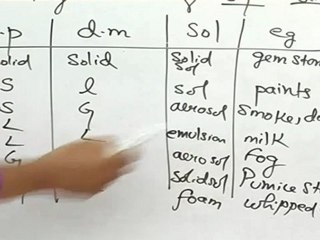 -p d-m Sol eg
olid Solid Solid Sol gem ston
S l Sol paints
S G aerosol Smoke, d
L L emulsion milk
G aerosol Fog
Solidsol Pumice St
foam whipped